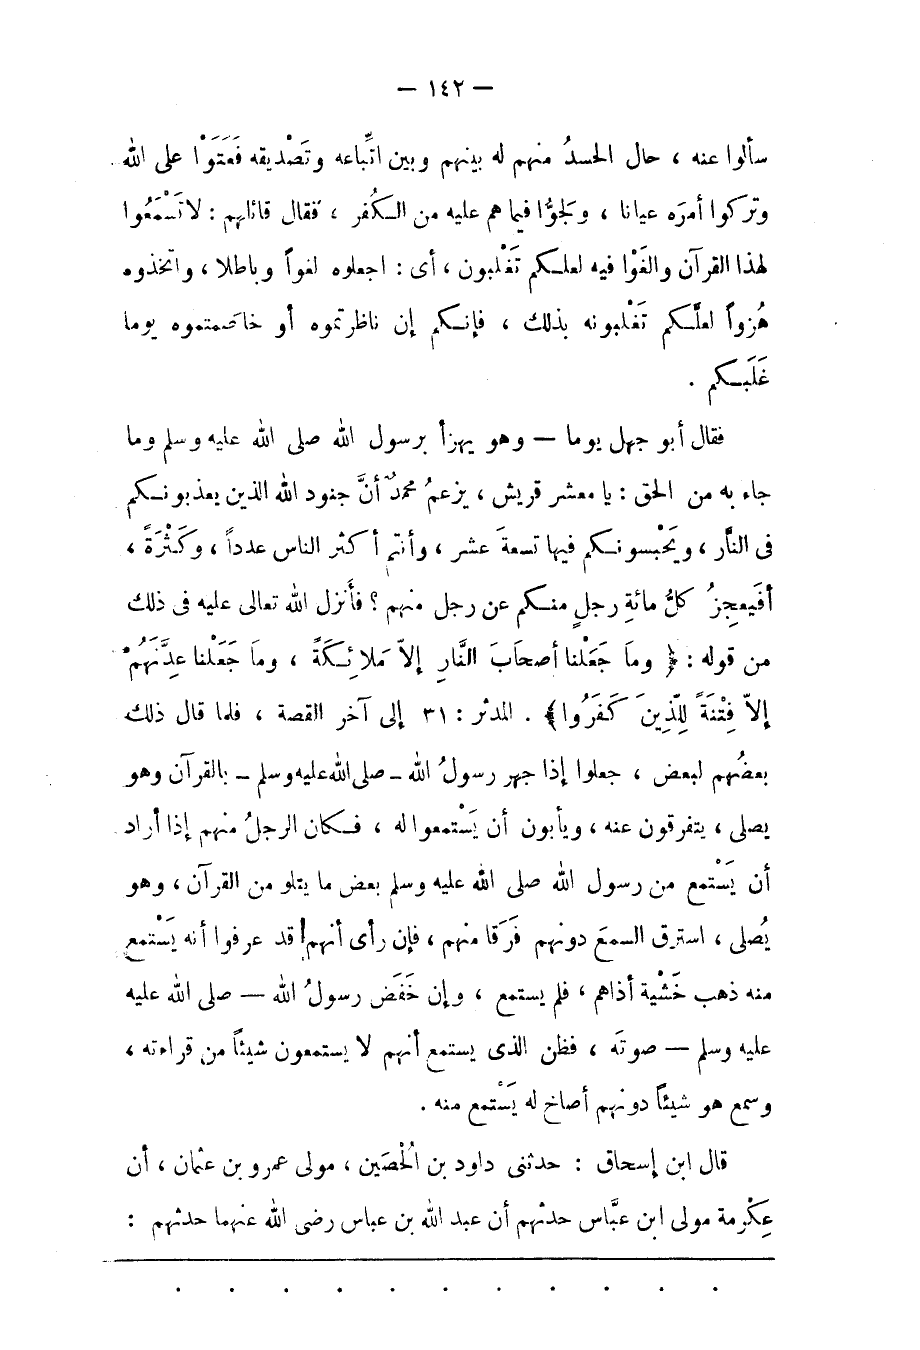 — ١٤٢ —
سألوا عنه ، حال الحسدُ منهم له بينهم وبين اتِّباعه وتَصْديقه فَعَتَوْا على الله
وتركوا أمرَه عيانا ، ولجوُّا فيما هم عليه من الكُفر ، فقال قائلهم : لا تَسْمَعُوا
لهذا القرآن والغَوْا فيه لعلكم تَغْلبون ، أى : اجعلوه لغواً وباطلا ، واتخذوه
هُزواً لعلَّكم تَغْلبونه بذلك ، فإنكم إن ناظرتموه أو خاصمتموه يوما
غَلَبكم .
فقال أبو جهل يوما — وهو يهزأ برسول الله صلى الله عليه وسلم وما
جاء به من الحق : يا معشر قريش ، يزعمُ محمدٌ أنَّ جنود الله الذين يعذبونكم
فى النَّار ، ويَحْبسونكم فيها تسعةَ عشر ، وأنتم أكثر الناس عدداً ، وكَثْرَةً ،
أفَيعجِزُ كلُّ مائةِ رجلٍ منكم عن رجل منهم ؟ فأَنزل الله تعالى عليه فى ذلك
من قوله : ﴿ وماَ جَعَلْنا أصحَابَ النَّارِ إلاّ مَلائِكَةً ، وماَ جَعَلْنا عِدَّتَهُمْ
إلاّ فِتْنَةً لِلّذِينَ كَفَرُوا﴾ . المدثر : ٣١ إلى آخر القصة ، فلما قال ذلك
بعضُهم لبعض ، جعلوا إذا جهر رسولُ الله ـ صلى الله عليه وسلم ـ بالقرآن وهو
يصلى ، يتفرقون عنه ، ويأبون أن يَسْتمعوا له ، فكان الرجلُ منهم إذا أراد
أن يَسْتمع من رسول الله صلى الله عليه وسلم بعض ما يتلو من القرآن ، وهو
يُصلى ، استرق السمعَ دونهم فَرَقا منهم ، فإن رأى أنهم قد عرفوا أنه يَسْتمع
منه ذهب خَشْية أذاهم ، فلم يستمع ، وإن خَفَض رسولُ الله — صلى الله عليه
عليه وسلم — صوتَه ، فظن الذى يستمع أنهم لا يستمعون شيئاً من قراءته ،
وسمع هو شيئاً دونهم أصاخ له يَسْتمع منه .
قال ابن إسحاق : حدثنى داود بن الُحْصَين ، مولى عمرو بن عثمان ، أن
عِكْرمة مولى ابن عبَّاس حدثهم أن عبد الله بن عباس رضى الله عنهما حدثهم :
. . . . . . . . . . .